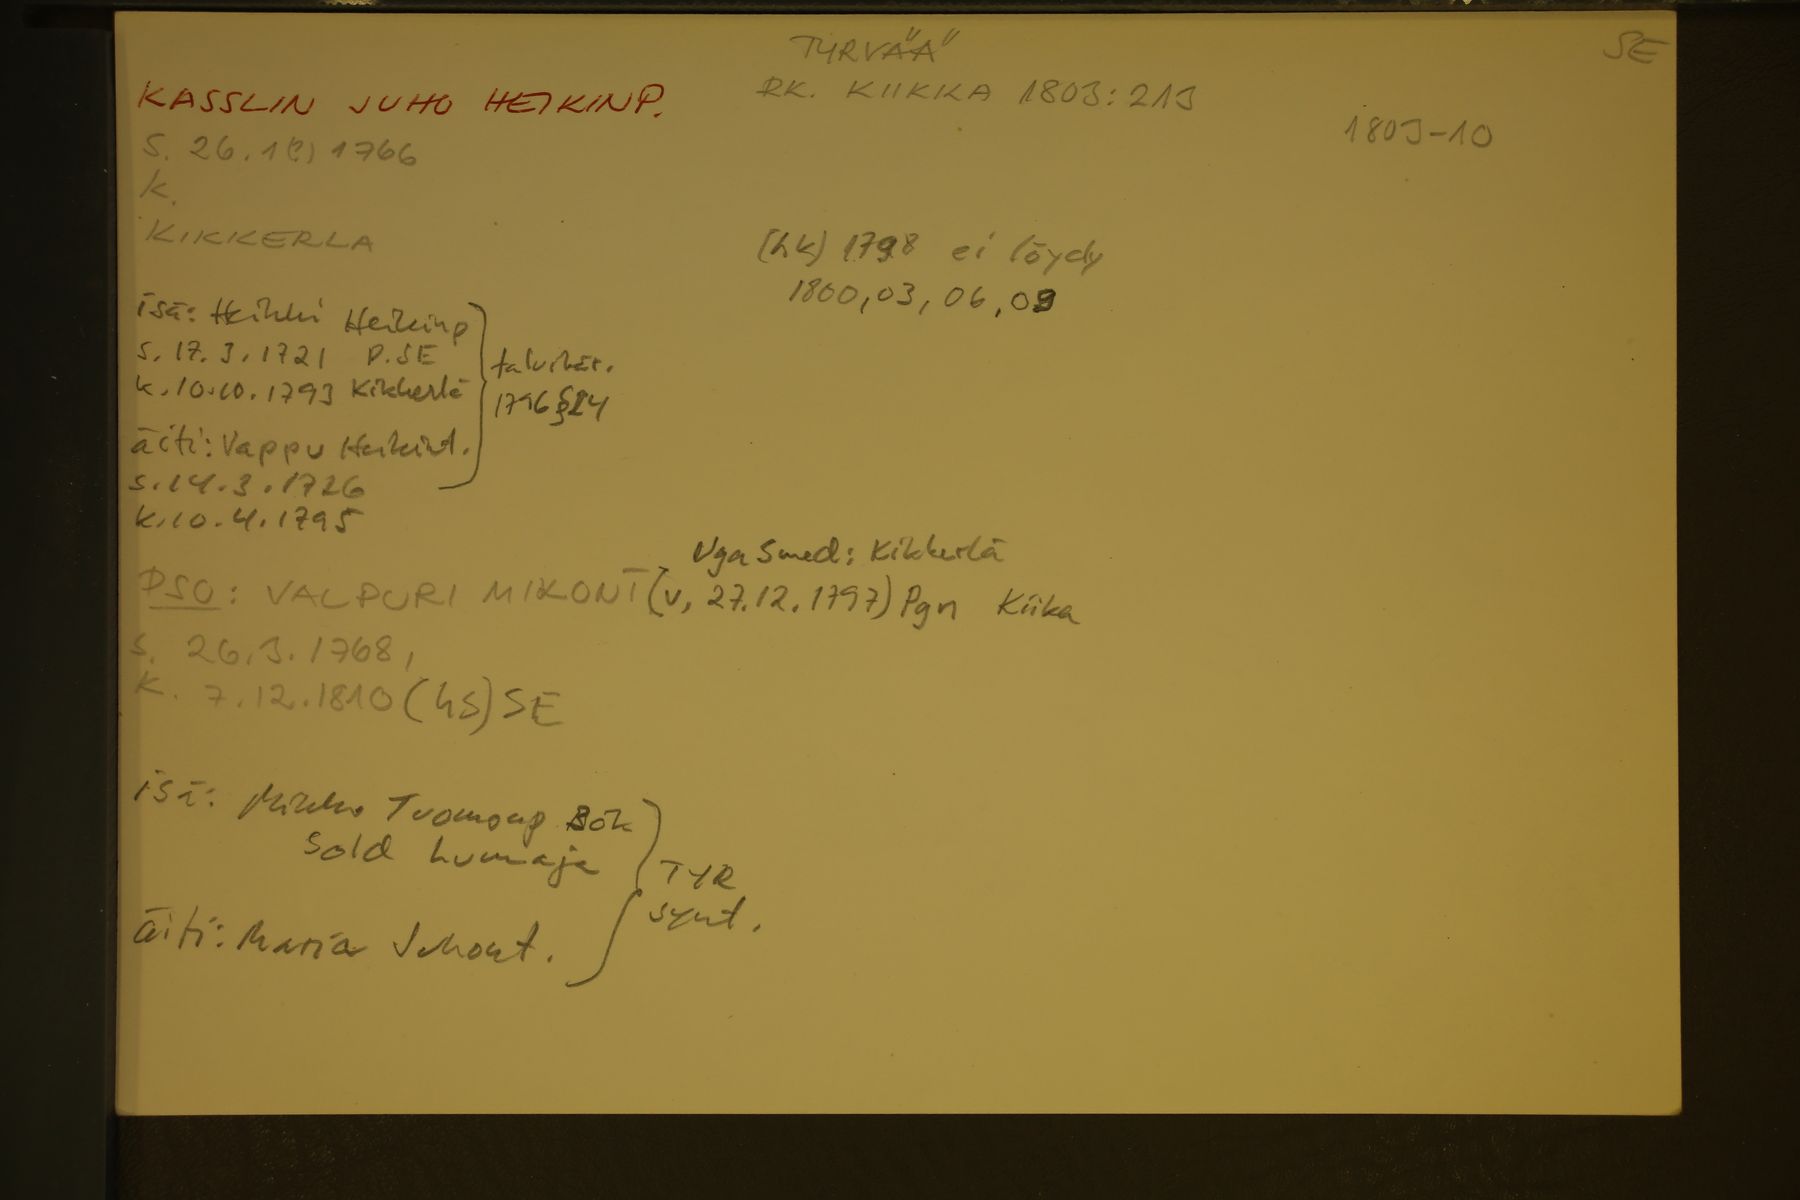 TYRVÄÄ
SE
KASSLIN JUHO HEIKINP.
RK. KIIKKA 1803:213
1803-10
S. 26.1(?) 1766
K.
KIKKERLA
(hk) 1798 ei löydy
1800, 03, 06, 09
isä: Heikki Heikinp
s. 17.3.1721 P.SE
k. 10.10.1793 Kikkerlä
talvikär.
1796 §24
äiti: Vappu Heikint.
s. 14.3.1726
k. 10.4.1795
Uga Smed: Kikkerlä
PSO: VALPURI MIKONT (v. 27.12.1797) Pgn Kiika
S. 26.3.1768,
K. 7.12.1810 (hs) SE
isä: Mikko Tuomonp Bök
Sold humaja
TYR
synt.
äiti: Maria Juhont.